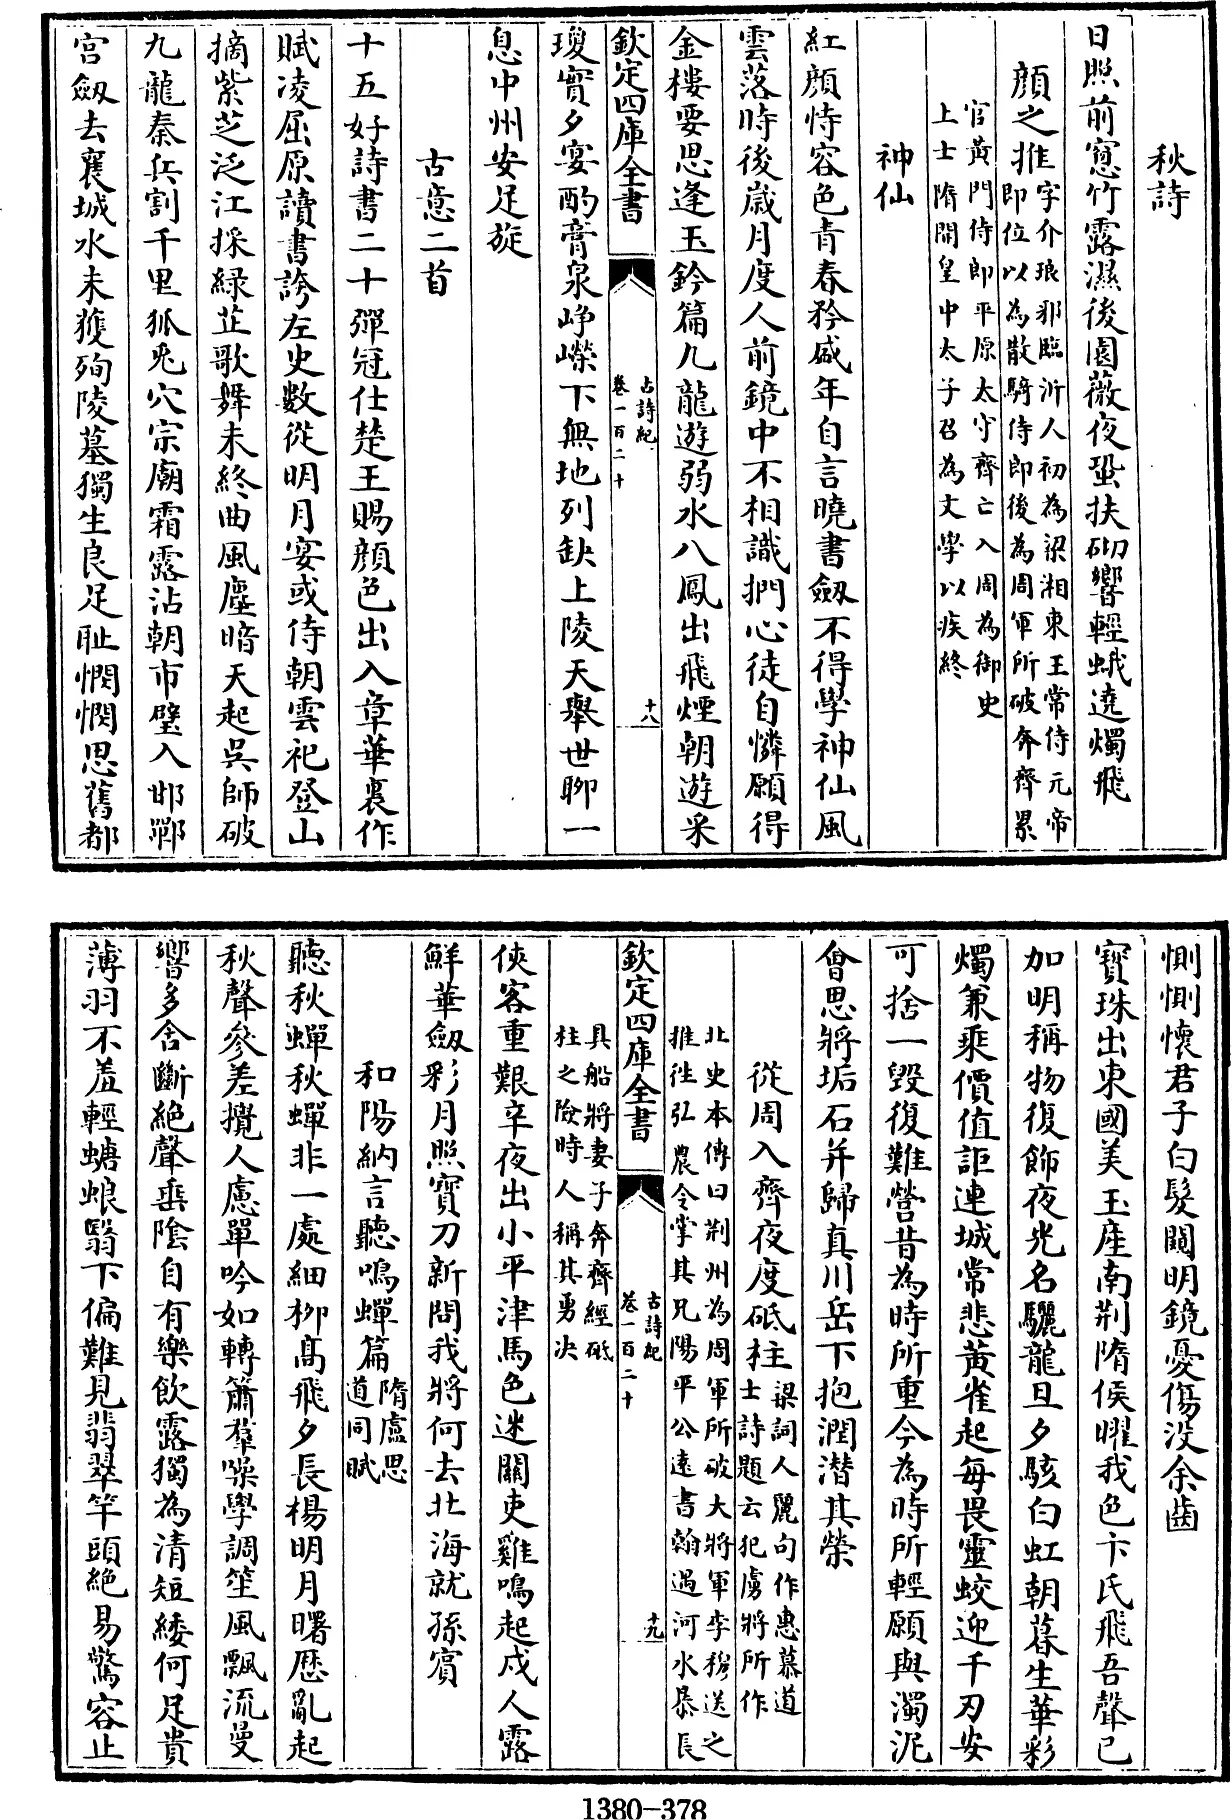 秋詩
日照前窻竹露濕後園薇夜蛩扶砌響輕蛾遶燭飛
顔之推字介琅邪臨沂人初為梁湘東王常侍元帝
即位以為散騎侍郎後為周軍所破奔齊累
官黄門侍郎平原太守齊亡入周為御史
上士隋開皇中太子召為文學以疾終
神仙
紅顔恃容色青春矜盛年自言曉書劔不得學神仙風
雲落時後歲月度人前鏡中不相識捫心徒自憐願得
金樓要思逢玉鈐篇九龍遊弱水八鳳出飛煙朝遊采
欽定四庫全書
古詩紀
卷一百二十
十八
瓊實夕宴酌膏泉崢嶸下無地列缺上陵天舉世聊一
息中州安足旋
古意二首
十五好詩書二十彈冠仕楚王賜顔色出入章華裏作
賦凌屈原讀書誇左史數從明月宴或侍朝雲祀登山
摘紫芝泛江採緑芷歌舞未終曲風塵暗天起吳師破
九龍秦兵割千里狐兎穴宗廟霜露沾朝市璧入邯鄲
宫劔去襄城水未獲殉陵墓獨生良足耻憫憫思舊都
惻惻懷君子白髮闚明鏡憂傷没余齒
寳珠出東國美玉産南荆隋侯曜我色卞氏飛吾聲已
加明稱物復飾夜光名驪龍旦夕駭白虹朝暮生華彩
燭兼乘價值詎連城常悲黄雀起每畏靈蛟迎千刃安
可捨一毁復難營昔為時所重今為時所輕願與濁泥
會思將垢石并歸真川岳下抱潤潛其榮
從周入齊夜度砥柱梁詞人麗句作惠慕道
士詩題云犯虜將所作
北史本傳曰荆州為周軍所破大將軍李穆送之
推徃弘農令掌其兄陽平公逺書翰遇河水暴長
欽定四庫全書
古詩紀
卷一百二十
十九
具船將妻子奔齊經砥
柱之險時人稱其勇决
俠客重艱辛夜出小平津馬色迷關吏雞鳴起戍人露
鮮華劔彩月照寳刀新問我將何去北海就孫賓
和陽納言聽鳴蟬篇隋盧思
道同賦
聽秋蟬秋蟬非一處細柳髙飛夕長楊明月曙歴亂起
秋聲參差攪人慮單吟如轉簫羣噪學調笙風飄流曼
響多含斷絶聲垂隂自有樂飲露獨為清短緌何足貴
薄羽不羞輕螗蜋翳下偏難見翡翠竿頭絶易驚容止
1380-378